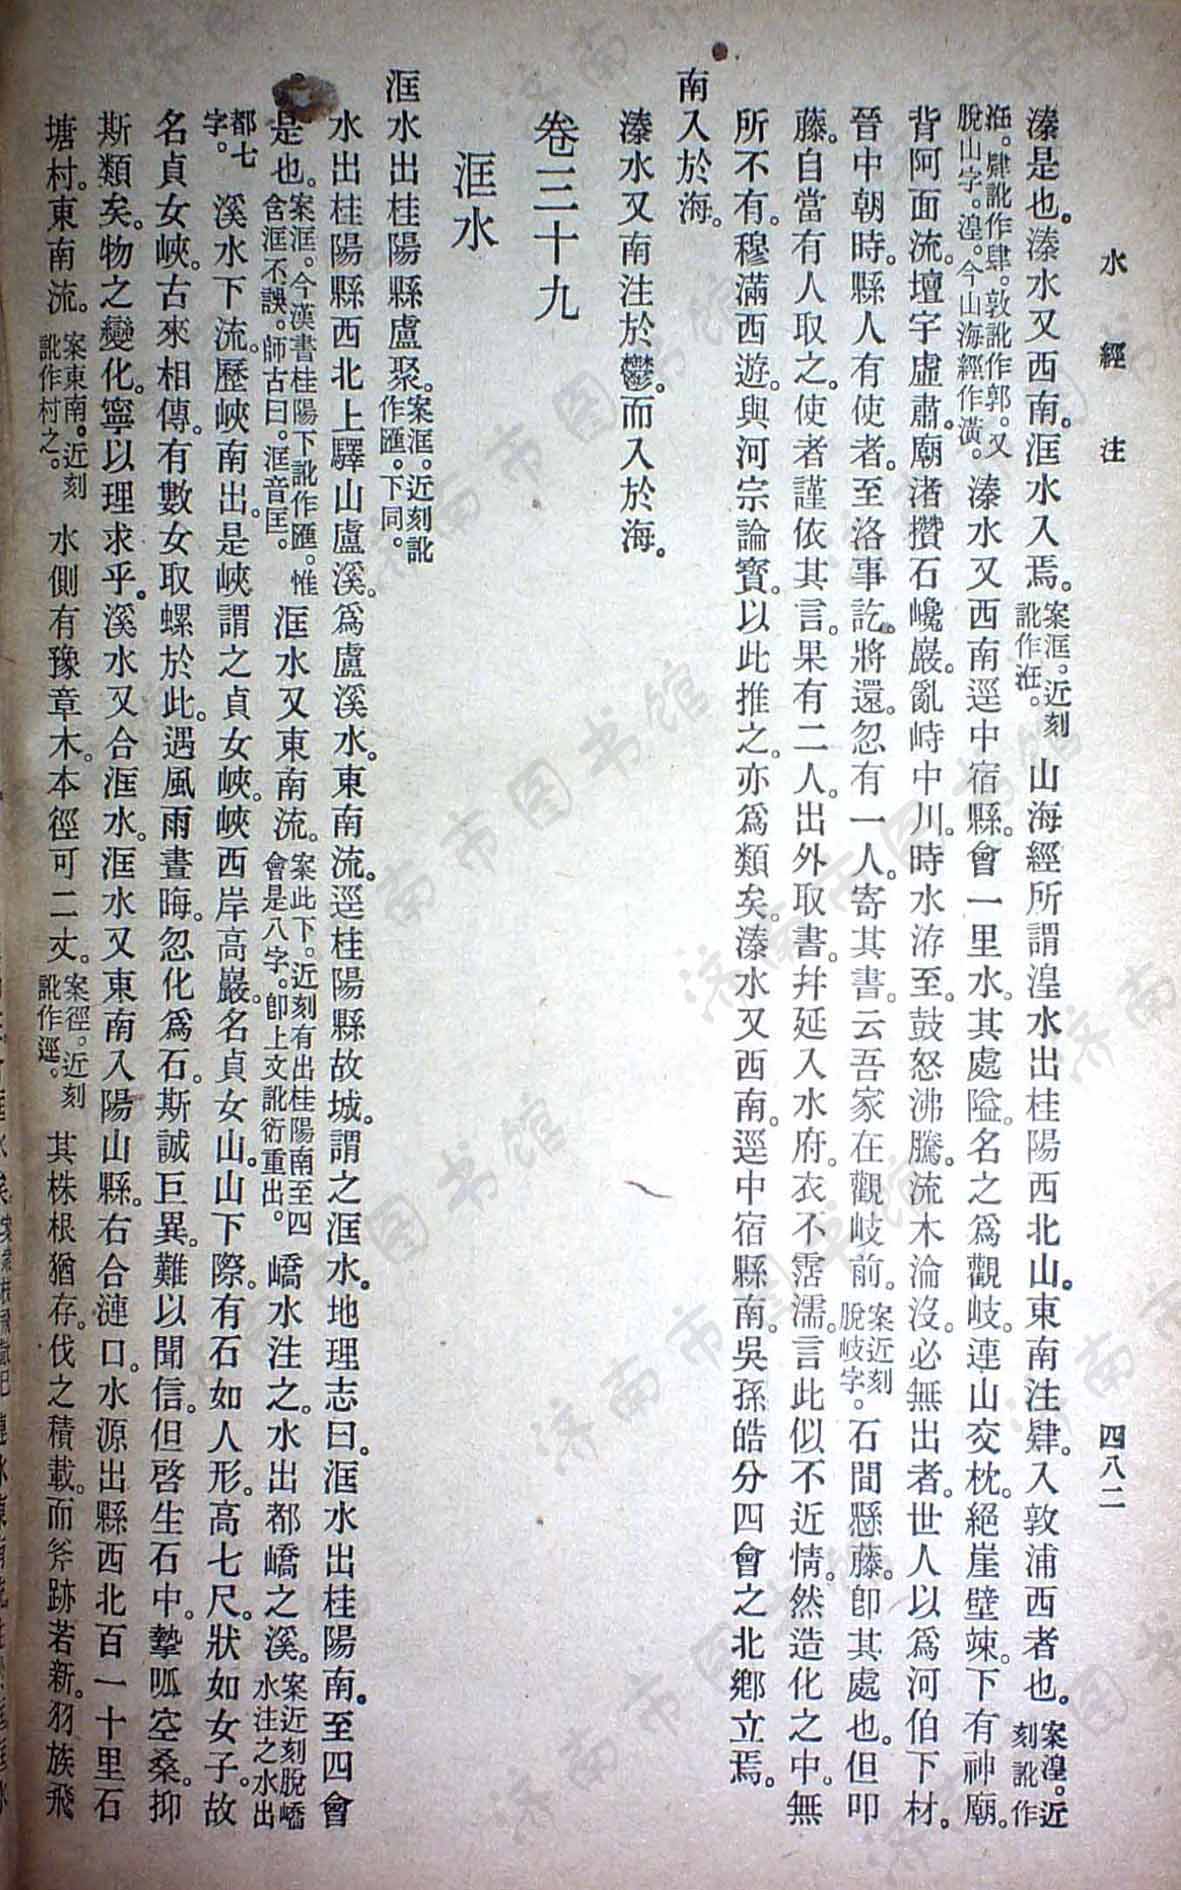 水經注
四八二
溱是也。溱水又西南。洭水入焉。案洭。近刻訛作湟。山海經所謂湟水出桂陽西北山。東南注肄。入敦浦西者也。案湟。近刻訛作
湟。肄訛作肆。敦訛作郭。又脫山字。湟。今山海經作潢。溱水又西南逕中宿縣。會一里水。其處隘。名之爲觀岐。連山交枕。絕崖壁竦。下有神廟。
背阿面流。壇宇虛肅。廟渚攢石巉巖。亂峙中川。時水洊至。鼓怒沸騰。流木淪沒。必無出者。世人以爲河伯下材。
晉中朝時。縣人有使者。至洛事訖。將還。忽有一人。寄其書。云吾家在觀岐前。案近刻脫岐字。石間懸藤。卽其處也。但叩
藤。自當有人取之。使者謹依其言。果有二人。出外取書。幷延入水府。衣不霑濡。言此似不近情。然造化之中。無
所不有。穆滿西遊。與河宗論寶。以此推之。亦爲類矣。溱水又西南。逕中宿縣南。吳孫皓分四會之北鄉立焉。
南入於海。
溱水又南注於鬱。而入於海。
卷三十九
洭水
洭水出桂陽縣盧聚。案洭。近刻訛作匯。下同。
水出桂陽縣西北上驛山盧溪。爲盧溪水。東南流。逕桂陽縣故城。謂之洭水。地理志曰。洭水出桂陽南。至四會
是也。案洭。今漢書桂陽下訛作匯。惟含洭不誤。師古曰。洭音匡。洭水又東南流。案此下。近刻有出桂陽南至四會是八字。卽上文訛衍重出。嶠水注之。水出都嶠之溪。案近刻脫嶠水注之水出
都七字。溪水下流。歷峽南出。是峽謂之貞女峽。峽西岸高巖。名貞女山。山下際。有石如人形。高七尺。狀如女子。故
名貞女峽。古來相傳。有數女取螺於此。遇風雨晝晦。忽化爲石。斯誠巨異。難以聞信。但啓生石中。摯呱空桑。抑
斯類矣。物之變化。寧以理求乎。溪水又合洭水。洭水又東南入陽山縣。右合漣口。水源出縣西北百一十里石
塘村。東南流。案東南。近刻訛作村之。水側有豫章木。本徑可二丈。案徑。近刻訛作逕。其株根猶存。伐之積載。而斧跡若新。羽族飛